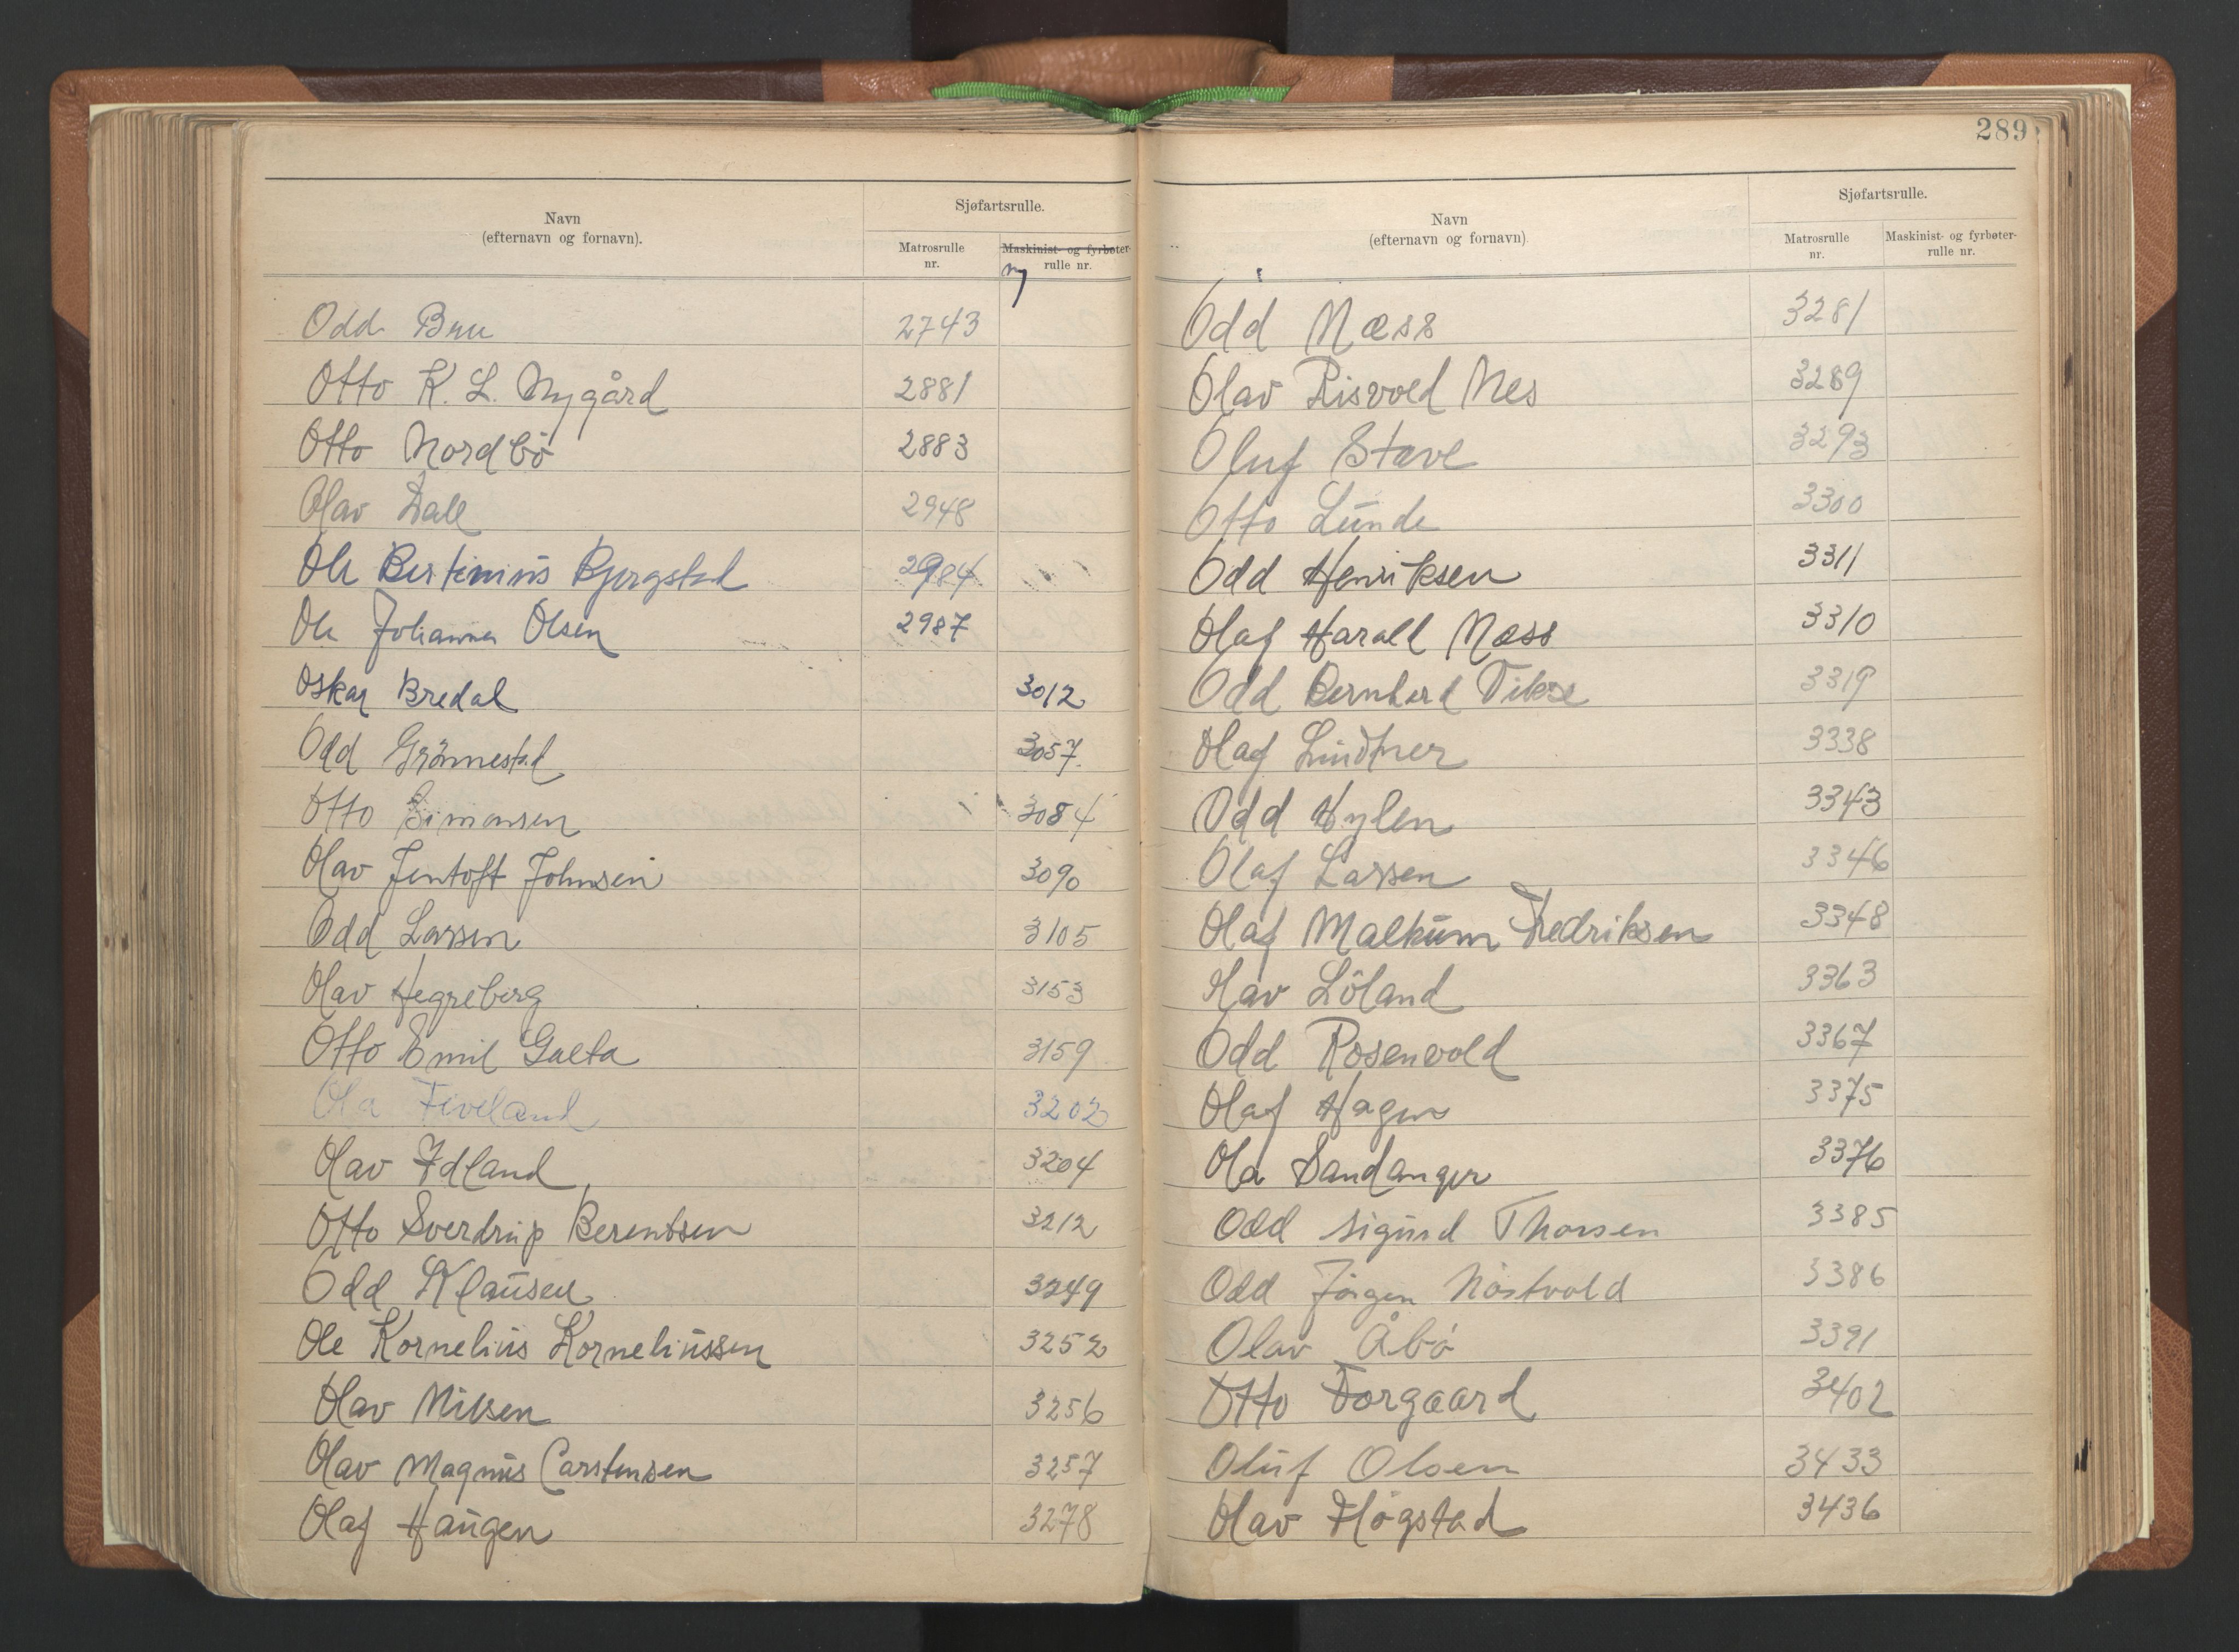 289
Navn
(efternavn og fornavn).
Sjøfartsrulle.
Matrosrulle
nr.
Maskinist- og fyrbøter-
rulle nr.
ny
Odd Bru 2743
Otto K. L. Nygård 2881
Otto Nordbö 2883
Olav Dall 2948
Ole Bertinius Bjergstad 2984
Ole Johannes Olsen 2987
Oskar Bredal 3012
Odd Grönnestad 3057
Otto Simonsen 3084
Olav Jentoft Johnsen 3090
Odd Larsen 3105
Olav Hegreberg 3153
Otto Emil Gaeta 3159
Ola Tveland 3202
Olav Idland 3204
Otto Sverdrup Berentsen 3212
Odd Klausen 3249
Ole Kornelius Korneliussen 3252
Olav Nilsen 3256
Olav Magnus Carstensen 3257
Olaf Haugen 3278
Navn
(efternavn og fornavn)
Sjøfartsrulle.
Matrosrulle
nr.
Maskinist- og fyrbøter-
rulle nr.
Odd Næss 3281
Olav Risvold Nes 3289
Oluf Stave 3293
Otto Lunde 3300
Odd Henriksen 3311
Olaf Harald Næss 3310
Odd Bernhard Vikse 3319
Olaf Lindtner 3338
Odd Hylen 3343
Olaf Larsen 3346
Olaf Malkum Fredriksen 3348
Olav Löland 3363
Odd Rosenvold 3367
Olaf Hagen 3375
Ola Sandanger 3376
Odd Sigurd Thorsen 3385
Odd Jörgen Nöstvold 3386
Olav Åbö 3391
Otto Torgaard 3402
Oluf Olsen 3433
Olav Högstad 3436